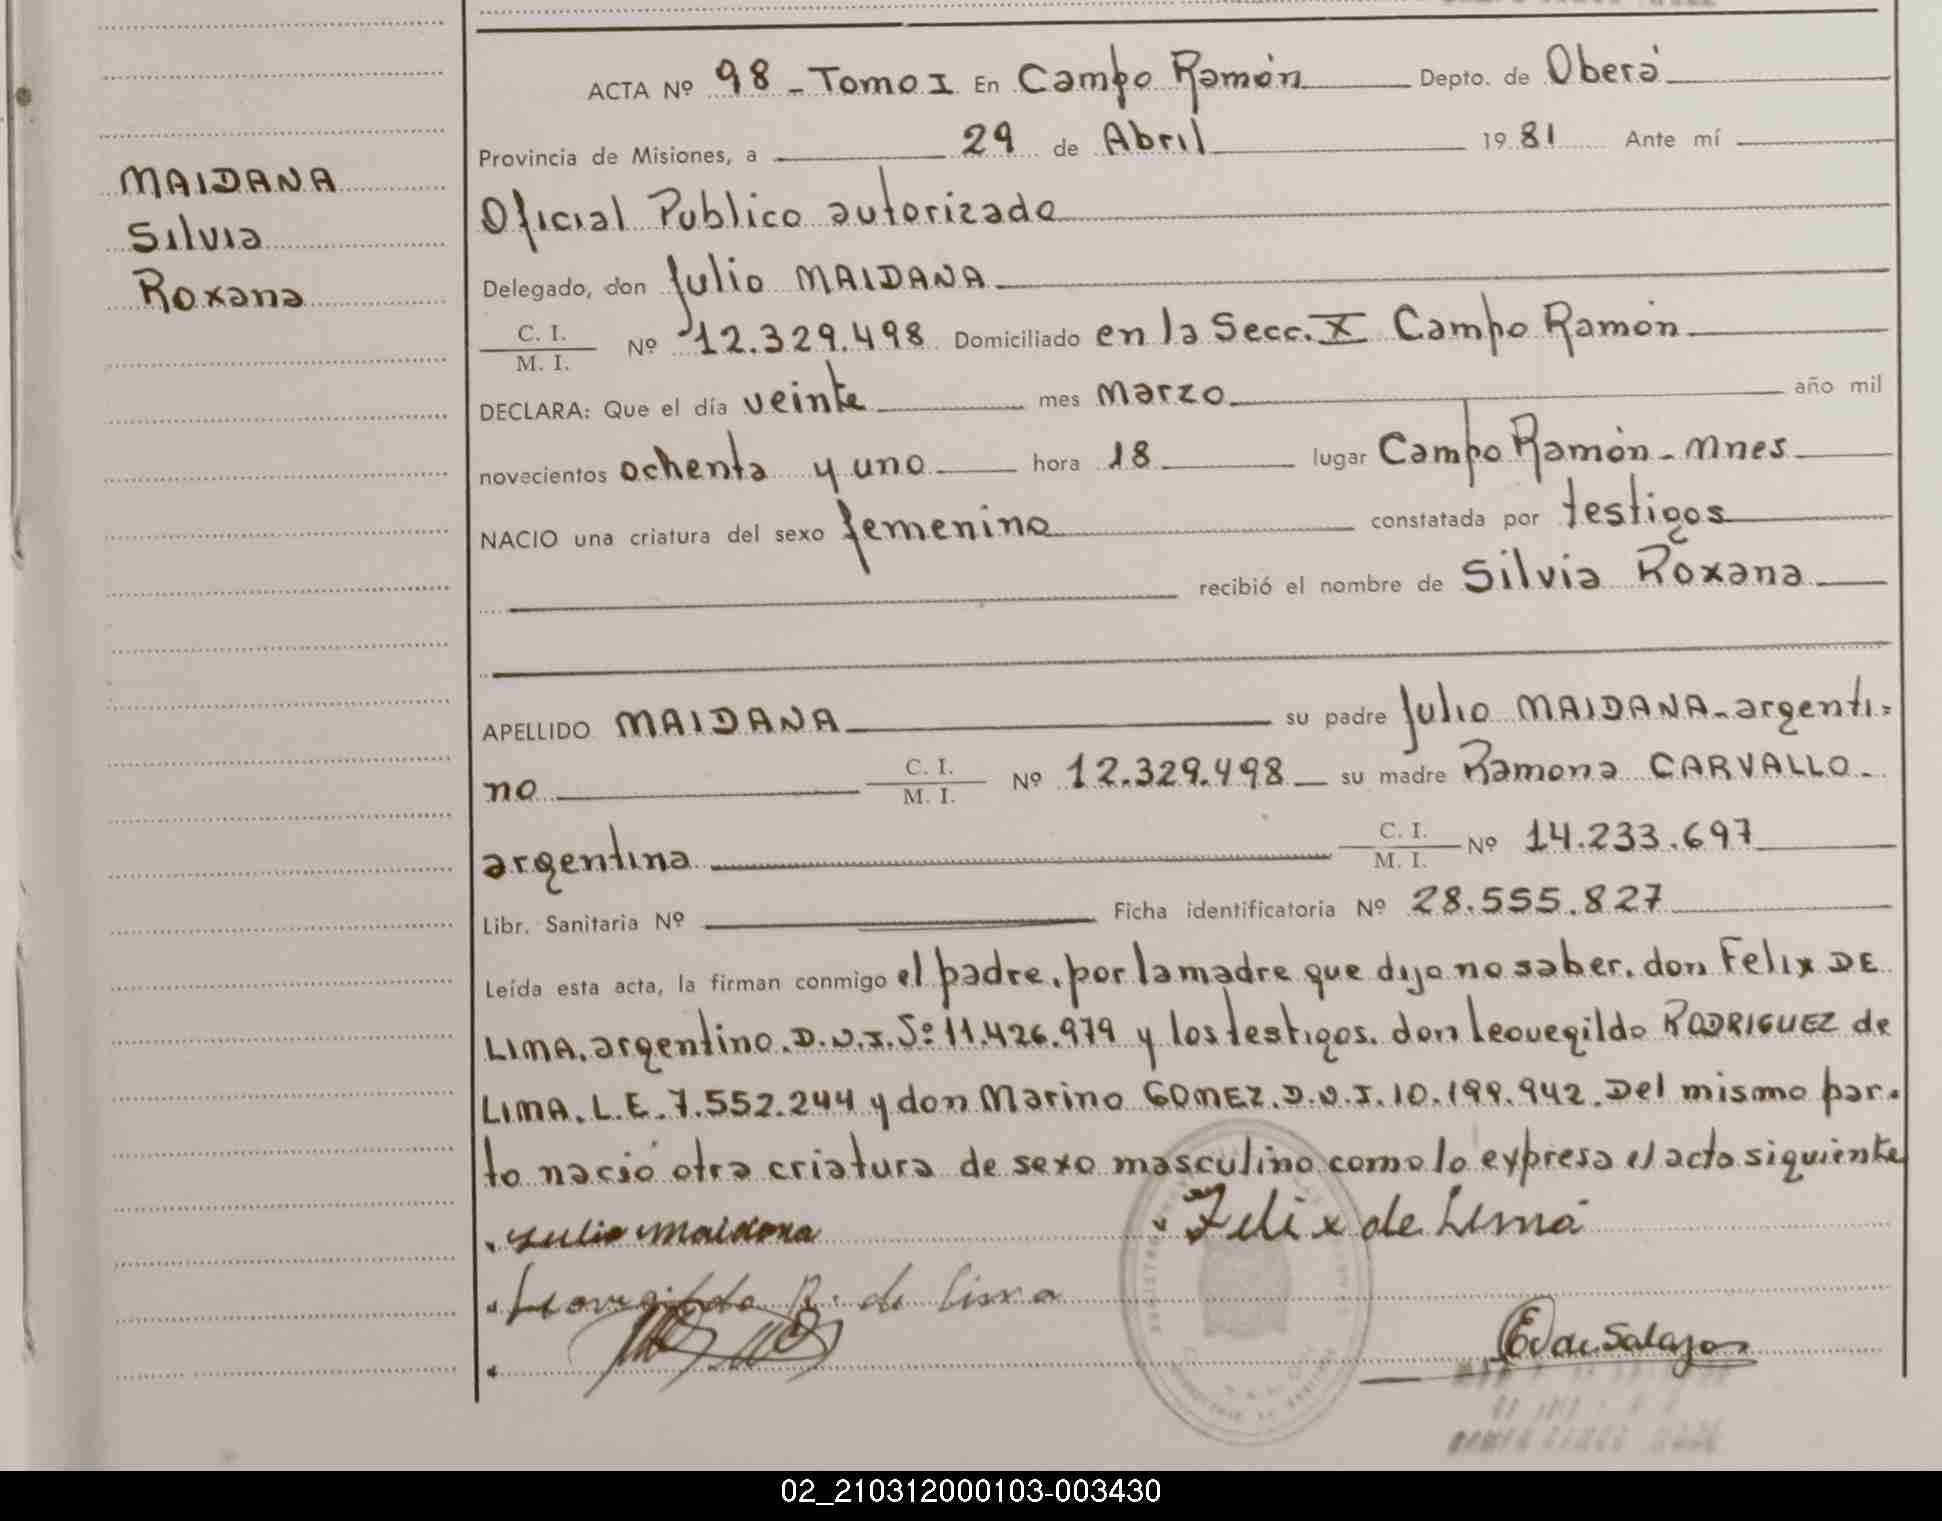 ACTA Nº 98 - Tomo I En Campo Ramón Depto. de Oberá
Provincia de Misiones, a 29 de Abril 1981 Ante mí
MAIDANA
Silvia
Roxana
Oficial Publico autorizado
Delegado, don Julio MAIDANA
C. I. / M. I. Nº 12.329.498 Domiciliado en la Secc. X Campo Ramón
DECLARA: Que el día veinte mes marzo año mil
novecientos ochenta y uno hora 18 lugar Campo Ramón - Mnes
NACIO una criatura del sexo femenino constatada por testigos
recibió el nombre de Silvia Roxana
APELLIDO MAIDANA su padre Julio MAIDANA - argenti=
no C. I. / M. I. Nº 12.329.498 su madre Ramona CARVALLO -
argentina C. I. / M. I. Nº 14.233.697
Libr. Sanitaria Nº Ficha identificatoria Nº 28.555.827
Leída esta acta, la firman conmigo el padre, por la madre que dijo no saber, don Felix DE
LIMA, argentino, D.N.I. Nº 11.426.979 y los testigos, don Leovegildo RODRIGUEZ de
LIMA, L.E. 7.552.244 y don Marino GOMEZ, D.N.I. 10.199.942. Del mismo par-
to nació otra criatura de sexo masculino como lo expresa el acta siguiente
Julio Maidana Felix de Lima
Leovegildo R. de Lima
E. V. de Salazar
02_210312000103-003430